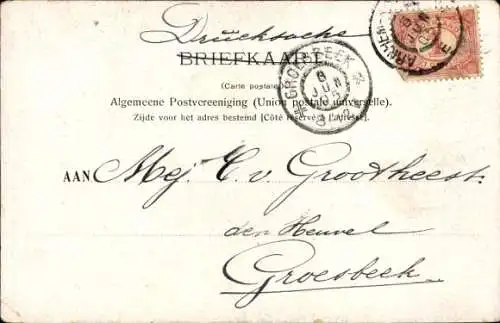 Drucksache
BRIEFKAART
(Carte postale)
Algemeene Postvereeniging (Union postale universelle).
Zijde voor het adres bestemd [Côté réservé à l'adresse].
GROESBEEK
8
JUN
AAN Mej. C. v. Grootheest
den Heuvel
Groesbeek